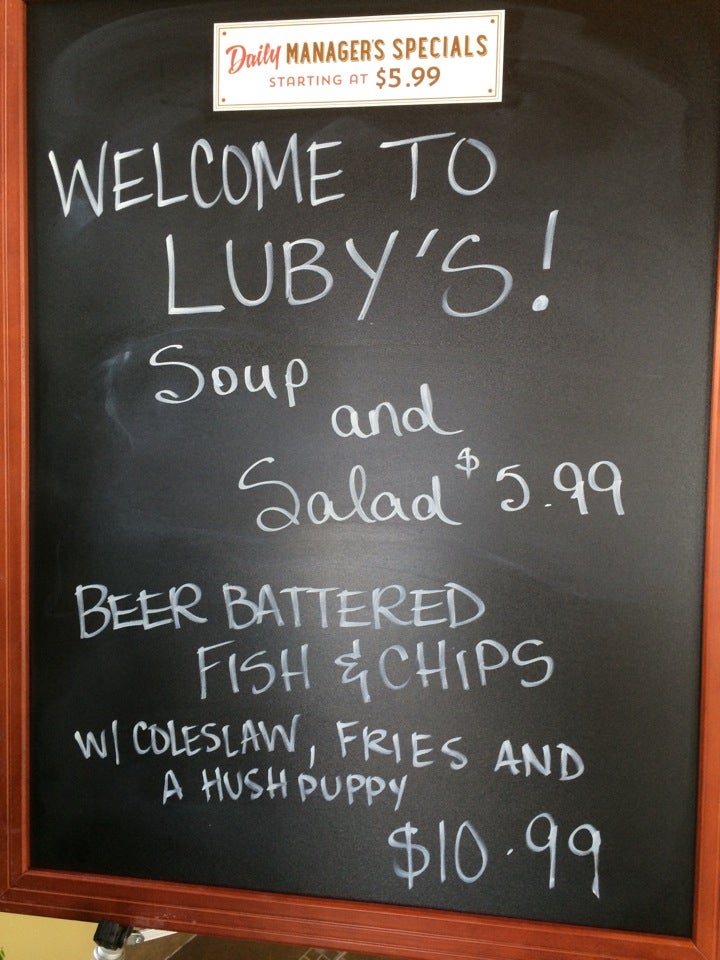 Daily MANAGER'S SPECIALS
STARTING AT $5.99
WELCOME TO
LUBY'S!
Soup
and
Salad $5.99
BEER BATTERED
FISH & CHIPS
W/ COLESLAW, FRIES AND
A HUSHPUPPY
$10.99